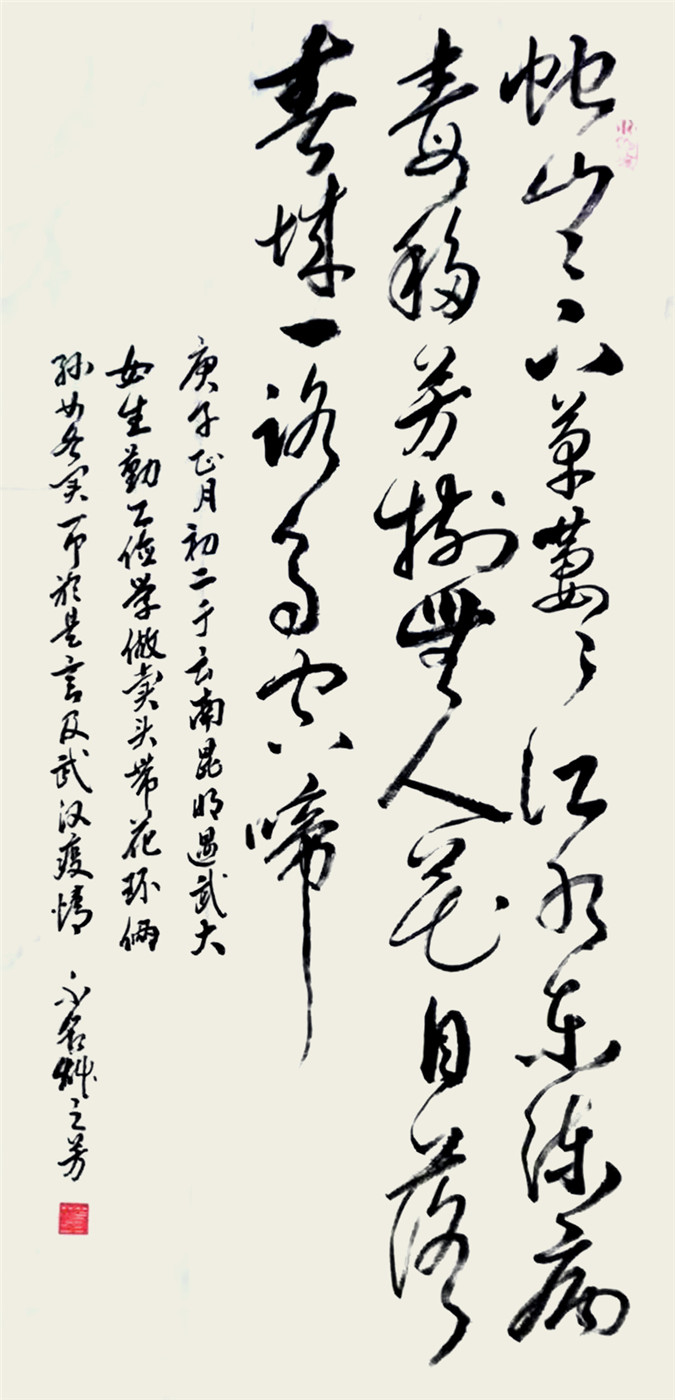 蛇山山下草萋萋江水东流病
毒移芳树無人花自落
春城一路鸟空啼
庚子正月初二于云南昆明遇武大
女生勤工俭学做卖头带花环俩
孙女各买一 於是言及武汉疫情 不名艸之芳